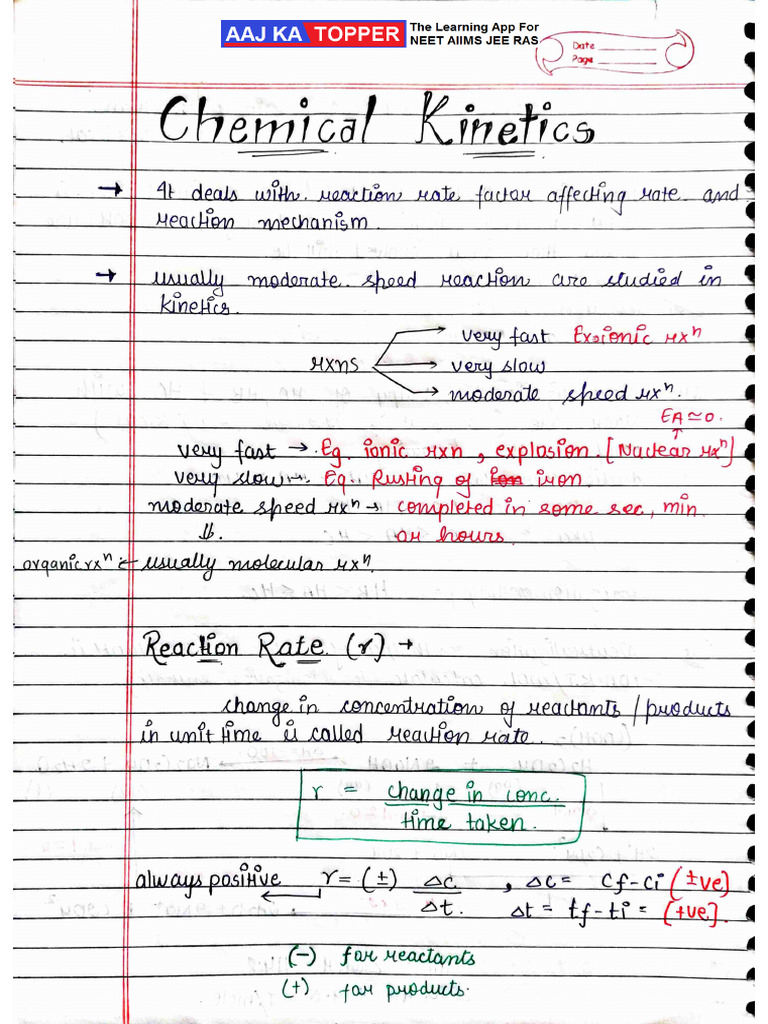 AAJ KA TOPPER The Learning App For
NEET AIIMS JEE RAS
Date
Page
Chemical Kinetics
→ It deals with reaction rate factor affecting rate and
reaction mechanism.
→ usually moderate speed reaction are studied in
kinetics.
very fast Ex:ionic rxⁿ
rxns → very slow
moderate speed rxⁿ.
EA≃0.
↑
very fast → Eg. ionic rxn, explosion. [Nuclear rxⁿ]
very slow → Eg. Rusting of iron.
moderate speed rxⁿ → completed in some sec, min.
⇓ or hours.
organic rxⁿ ← usually molecular rxⁿ.
Reaction Rate (r) →
change in concentration of reactants/products
in unit time is called reaction rate.
r = change in conc.
time taken.
always positive ← r = (±) Δc/Δt. , Δc = Cf-Ci (±ve)
Δt = tf-ti = (+ve].
(-) for reactants
(+) for products.